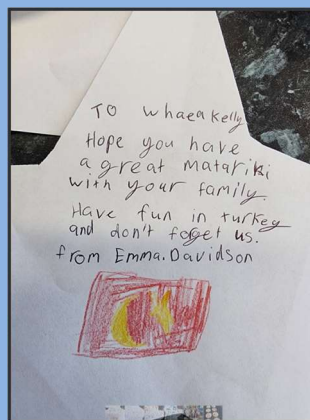 TO whaea kelly
Hope you have
a great matariki
with your family.
Have fun in turkey
and don't foget us.
from Emma.Davidson